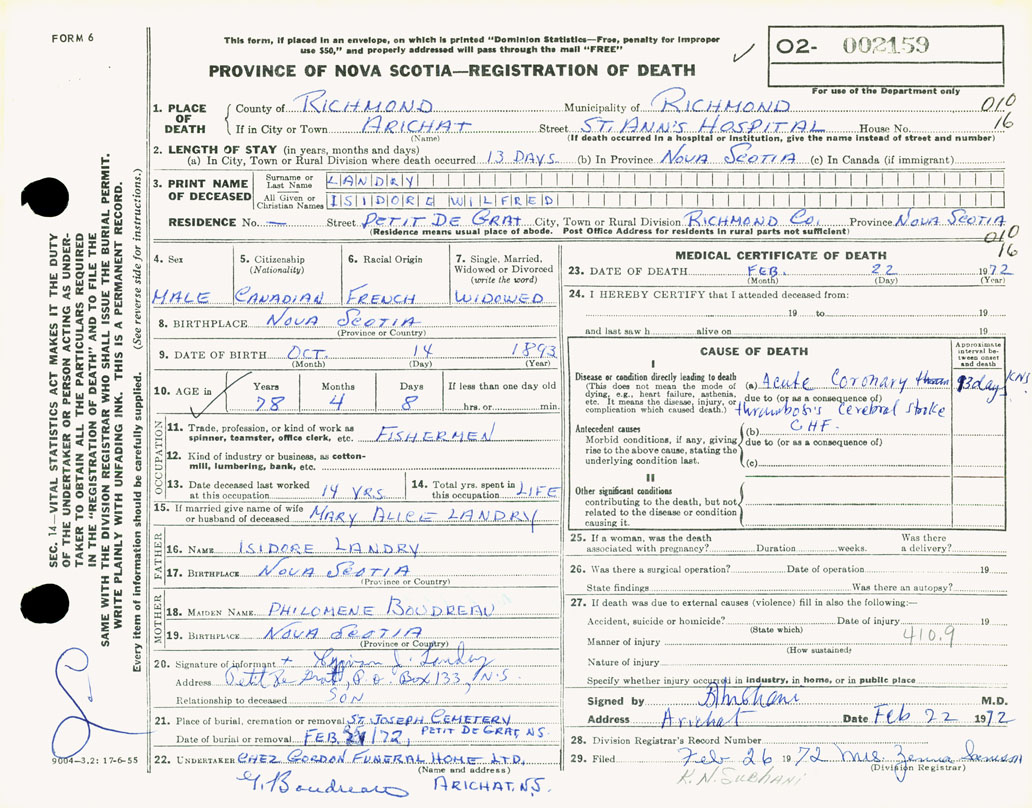 FORM 6
This form, if placed in an envelope, on which is printed "Dominion Statistics—Free, penalty for improper
use $50," and properly addressed will pass through the mail "FREE"
O2- 002159
For use of the Department only
PROVINCE OF NOVA SCOTIA—REGISTRATION OF DEATH
1. PLACE OF DEATH
County of RICHMOND Municipality of RICHMOND 010
If in City or Town ARICHAT Street ST. ANN'S HOSPITAL House No. 16
(Name) (If death occurred in a hospital or institution, give the name instead of street and number)
2. LENGTH OF STAY (in years, months and days)
(a) In City, Town or Rural Division where death occurred 13 DAYS (b) In Province NOVA SCOTIA (c) In Canada (if immigrant)
3. PRINT NAME OF DECEASED
Surname or Last Name LANDRY
All Given or Christian Names ISIDORE WILFRED
RESIDENCE No. — Street PETIT DE GRAT City, Town or Rural Division RICHMOND CO. Province NOVA SCOTIA
(Residence means usual place of abode. Post Office Address for residents in rural parts not sufficient)
010
16
4. Sex
MALE
5. Citizenship
(Nationality)
CANADIAN
6. Racial Origin
FRENCH
7. Single, Married,
Widowed or Divorced
(write the word)
WIDOWED
8. BIRTHPLACE NOVA SCOTIA
(Province or Country)
9. DATE OF BIRTH OCT. 14 1893
(Month) (Day) (Year)
10. AGE in
Years Months Days If less than one day old
78 4 8 hrs. or min.
OCCUPATION
11. Trade, profession, or kind of work as
spinner, teamster, office clerk, etc. FISHERMEN
12. Kind of industry or business, as cotton-
mill, lumbering, bank, etc.
13. Date deceased last worked
at this occupation 14 YRS
14. Total yrs. spent in
this occupation LIFE
15. If married give name of wife
or husband of deceased MARY ALICE LANDRY
FATHER
16. NAME ISIDORE LANDRY
17. BIRTHPLACE NOVA SCOTIA
(Province or Country)
MOTHER
18. MAIDEN NAME PHILOMENE BOUDREAU
19. BIRTHPLACE NOVA SCOTIA
(Province or Country)
20. Signature of informant + J. Landry
Address Petit De Grat, P.O. Box 133, N.S.
Relationship to deceased SON
21. Place of burial, cremation or removal ST. JOSEPH CEMETERY
PETIT DE GRAT, N.S.
Date of burial or removal FEB. /72,
22. UNDERTAKER CHEZ GORDON FUNERAL HOME LTD.
(Name and address)
G. Boudreau ARICHAT, N.S.
MEDICAL CERTIFICATE OF DEATH
23. DATE OF DEATH FEB. 22 1972
(Month) (Day) (Year)
24. I HEREBY CERTIFY that I attended deceased from:
19 to 19
and last saw h alive on 19
CAUSE OF DEATH
Approximate
interval be-
tween onset
and death
I
Disease or condition directly leading to death
(This does not mean the mode of
dying, e.g., heart failure, asthenia,
etc. It means the disease, injury, or
complication which caused death.)
(a) Acute Coronary 13 days
due to (or as a consequence of)
thrombosis Cerebral stroke
Antecedent causes
Morbid conditions, if any, giving
rise to the above cause, stating the
underlying condition last.
(b) CHF.
due to (or as a consequence of)
(c)
II
Other significant conditions
contributing to the death, but not
related to the disease or condition
causing it.
25. If a woman, was the death
associated with pregnancy? Duration weeks. Was there
a delivery?
26. Was there a surgical operation? Date of operation 19
State findings Was there an autopsy?
27. If death was due to external causes (violence) fill in also the following:—
Accident, suicide or homicide? Date of injury 19
(State which) 410.9
Manner of injury
(How sustained)
Nature of injury
Specify whether injury occurred in industry, in home, or in public place
Signed by M.D.
Address Arichat Date Feb 22 1972
28. Division Registrar's Record Number
29. Filed Feb 26 1972 Mrs
(Division Registrar)
R. N. SUBHANI
SEC. 14—VITAL STATISTICS ACT MAKES IT THE DUTY
OF THE UNDERTAKER OR PERSON ACTING AS UNDER-
TAKER TO OBTAIN ALL THE PARTICULARS REQUIRED
IN THE "REGISTRATION OF DEATH" AND TO FILE THE
SAME WITH THE DIVISION REGISTRAR WHO SHALL ISSUE THE BURIAL PERMIT.
WRITE PLAINLY WITH UNFADING INK. THIS IS A PERMANENT RECORD.
Every item of information should be carefully supplied. (See reverse side for instructions.)
9004-3.2: 17-6-55